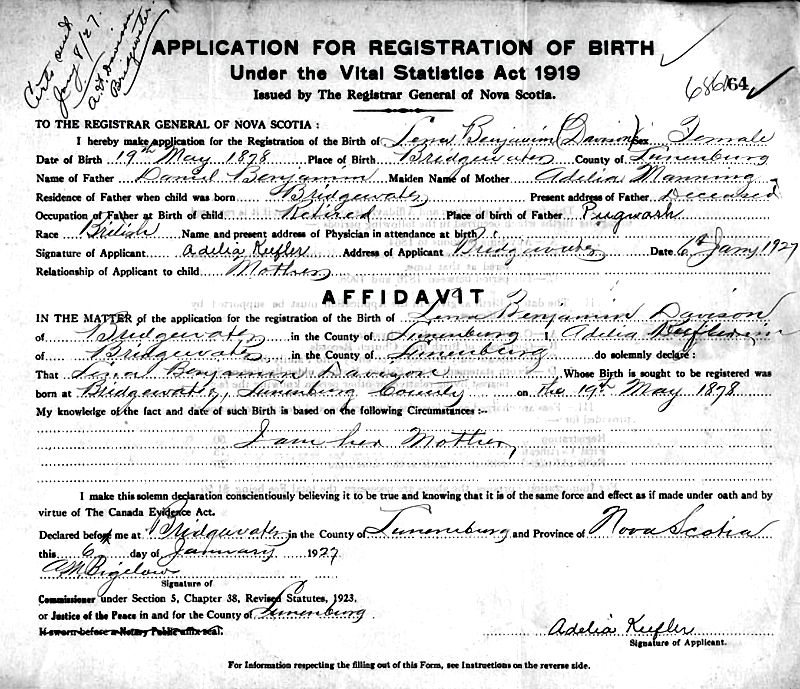 Certs sent
Jany 8/27.
A. H. Davison
Bridgewater
APPLICATION FOR REGISTRATION OF BIRTH
Under the Vital Statistics Act 1919
Issued by The Registrar General of Nova Scotia.
64
TO THE REGISTRAR GENERAL OF NOVA SCOTIA :
I hereby make application for the Registration of the Birth of Lena Benjamin (Davison) Sex Female
Date of Birth 19th May 1878 Place of Birth Bridgewater County of Lunenburg
Name of Father Daniel Benjamin Maiden Name of Mother Adelia Manning
Residence of Father when child was born Bridgewater Present address of Father Deceased
Occupation of Father at Birth of child Retired Place of birth of Father Pugwash
Race British Name and present address of Physician in attendance at birth
Signature of Applicant Adelia Keefler Address of Applicant Bridgewater Date 6th Jany 1927
Relationship of Applicant to child Mother
AFFIDAVIT
IN THE MATTER of the application for the registration of the Birth of Lena Benjamin Davison
of Bridgewater in the County of Lunenburg I, Adelia Keefler
of Bridgewater in the County of Lunenburg do solemnly declare :
That Lena Benjamin Davison Whose Birth is sought to be registered was
born at Bridgewater, Lunenburg County on the 19th May 1878
My knowledge of the fact and date of such Birth is based on the following Circumstances :--
I am her Mother
I make this solemn declaration conscientiously believing it to be true and knowing that it is of the same force and effect as if made under oath and by
virtue of The Canada Evidence Act.
Declared before me at Bridgewater in the County of Lunenburg and Province of Nova Scotia
this 6th day of January 1927
A M Bigelow
Signature of
Commissioner under Section 5, Chapter 38, Revised Statutes, 1923,
or Justice of the Peace in and for the County of Lunenburg
If sworn before a Notary Public affix seal.
Adelia Keefler
Signature of Applicant.
For Information respecting the filling out of this Form, see Instructions on the reverse side.